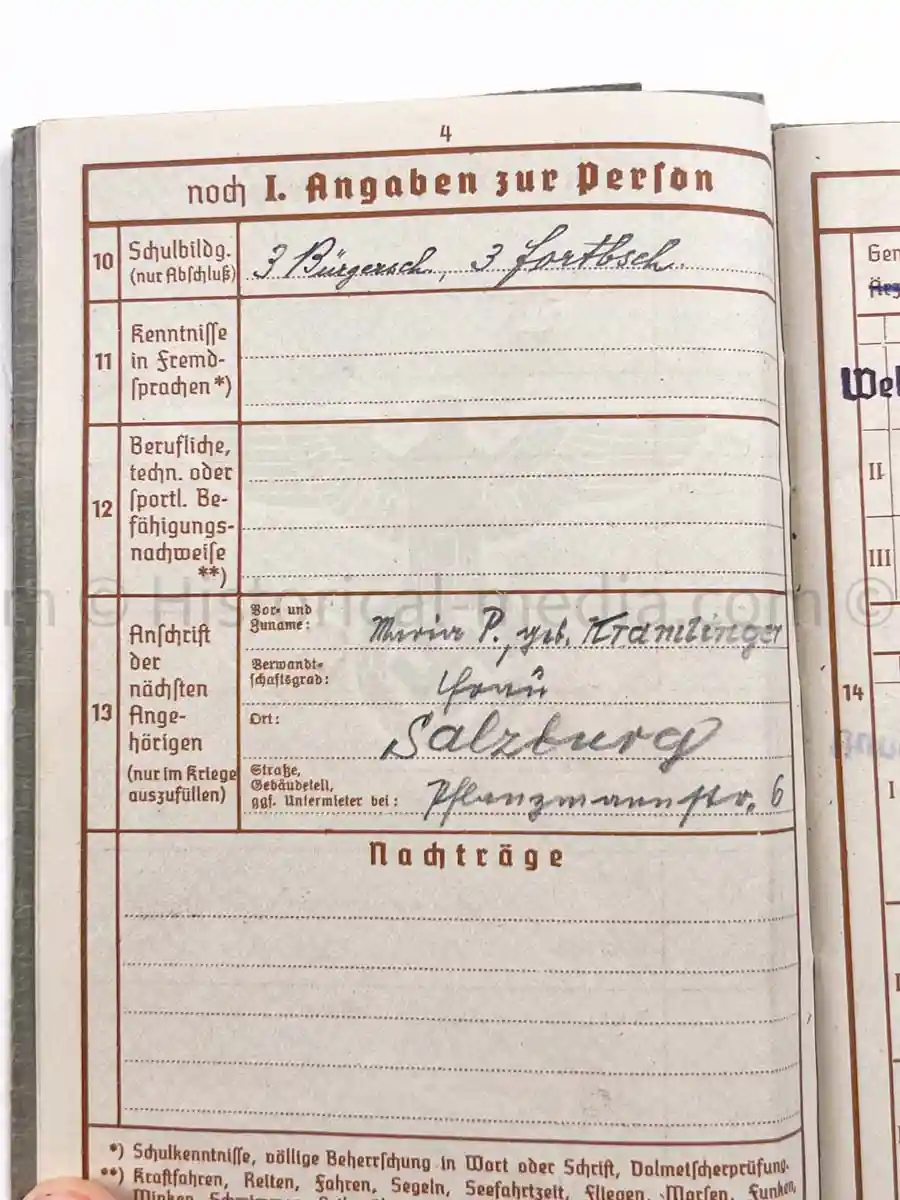 4
noch I. Angaben zur Person
10 Schulbildg. (nur Abschluß)
3 Bürgersch., 3 Fortbsch.
11 Kenntnisse in Fremd-
sprachen *)
12 Berufliche,
techn. oder
sportl. Be-
fähigungs-
nachweise
**)
13 Anschrift
der
nächsten
Ange-
hörigen
(nur im Kriege
auszufüllen)
Vor- und
Zuname: Maria P., geb. Kramlinger
Verwandt-
schaftsgrad: Frau
Ort: Salzburg
Straße,
Gebäudeteil,
ggf. Untermieter bei: Pflanzmannstr. 6
Nachträge
*) Schulkenntnisse, völlige Beherrschung in Wort oder Schrift, Dolmetscherprüfung.
**) Kraftfahren, Reiten, Fahren, Segeln, Seefahrtzeit, Fliegen, Morsen, Funken,
II
III
14
I
© Historical-media.com ©